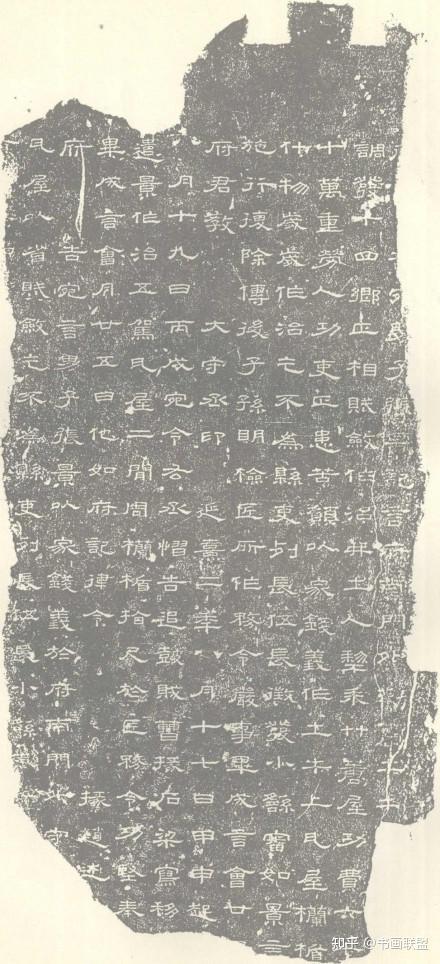 子張景記言府南門外
調發十四鄉正相賦斂作治并土人犁耒廾蓎屋功費六
十萬重勞人功吏正患苦願以家錢義作土牛上瓦屋欄楯
什物歲歲作治乞不為縣吏列長伍長徵發小繇審如景言
施行復除傳後子孫明檢匠所作務令嚴事畢成言會廿
府君教 大守丞印 延熹二年八月十七日甲申起
八月十九日丙戌宛令右丞慴告追鼓賊曹掾石梁寫移
遣景作治五駕瓦屋二間周欄楯拾尺於匠務令功堅奉
畢成言會月廿五日他如府記律令 掾趙述
府告宛言男子張景以家錢義於府南門外守
瓦屋以省賦斂乞不為縣吏列長伍長小繇
知乎 @书画联盟